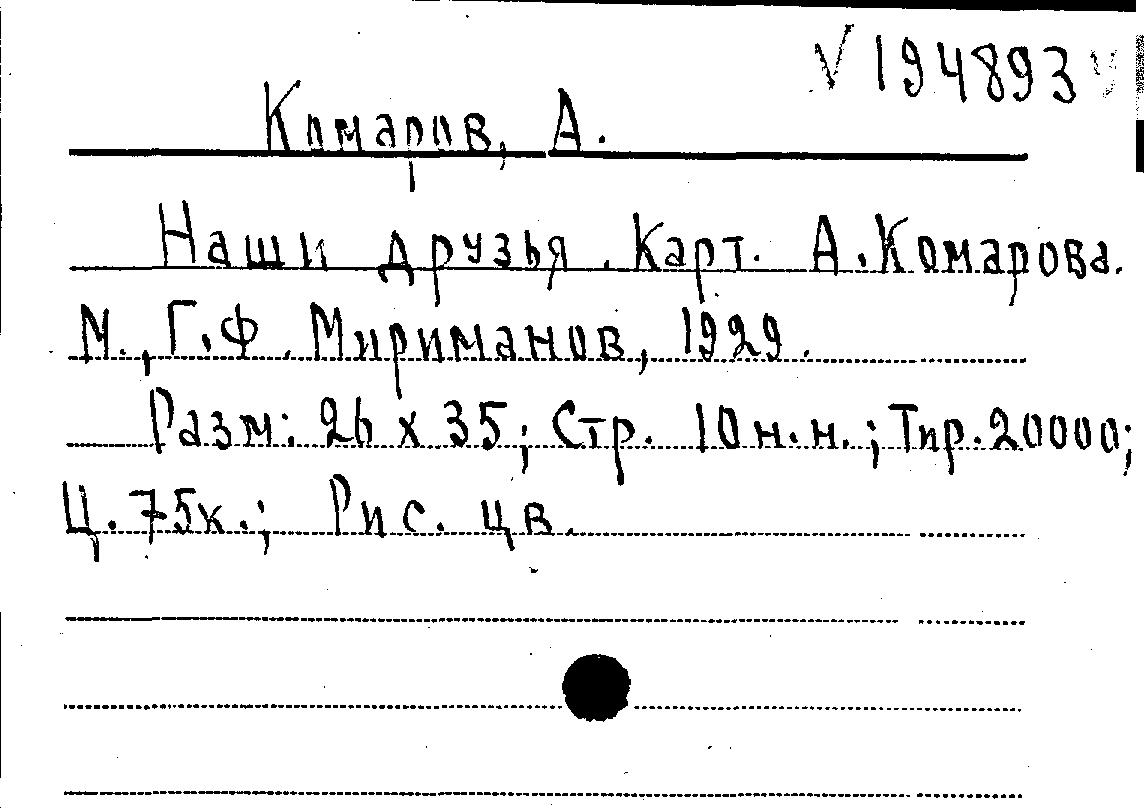 √ 194893
Комаров, А.
Наши друзья. Карт. А. Комарова.
М., Г.Ф. Мириманов, 1929.
Разм: 26 х 35; Стр. 10 н.н.; Тир. 20000;
Ц. 75к.; Рис. цв.